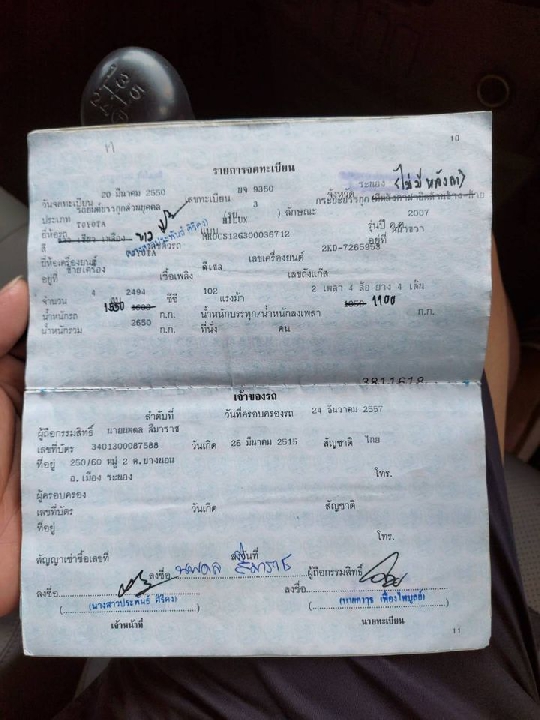 10
รายการจดทะเบียน
วันจดทะเบียน 20 มีนาคม 2550 เลขทะเบียน ผจ 9350 จังหวัด ระยอง (ไม่มีหลังคา)
ประเภท รถยนต์บรรทุกส่วนบุคคล 3 ลักษณะ
ยี่ห้อรถ TOYOTA แบบ รุ่นปี ค.ศ. 2007
สี เทา
ยี่ห้อเครื่องยนต์ TOYOTA เลขเครื่องยนต์ 2KD-7265958 อยู่ที่
อยู่ที่ ซ้ายเครื่อง เชื้อเพลิง ดีเซล เลขถังแก๊ส
จำนวน 4 สูบ 2494 ซีซี 102 แรงม้า 2 เพลา 4 ล้อ ยาง 4 เส้น
น้ำหนักรถ 1550 ก.ก. น้ำหนักบรรทุก/น้ำหนักลงเพลา 1100 ก.ก.
น้ำหนักรวม 2650 ก.ก. ที่นั่ง คน
3811618
เจ้าของรถ
ลำดับที่ วันที่ครอบครองรถ 24 ธันวาคม 2557
ผู้ถือกรรมสิทธิ์ นายนพดล สีมาราช
เลขที่บัตร 3401300087588 วันเกิด 25 มีนาคม 2515 สัญชาติ ไทย
ที่อยู่ 250/60 หมู่ 2 ต.
อ.เมือง ระยอง โทร.
ผู้ครอบครอง
เลขที่บัตร วันเกิด สัญชาติ
ที่อยู่
โทร.
สัญญาเช่าซื้อเลขที่ ลงวันที่
ลงชื่อ นพดล สีมาราช ผู้ถือกรรมสิทธิ์
ลงชื่อ ลงชื่อ
เจ้าหน้าที่ นายทะเบียน
11